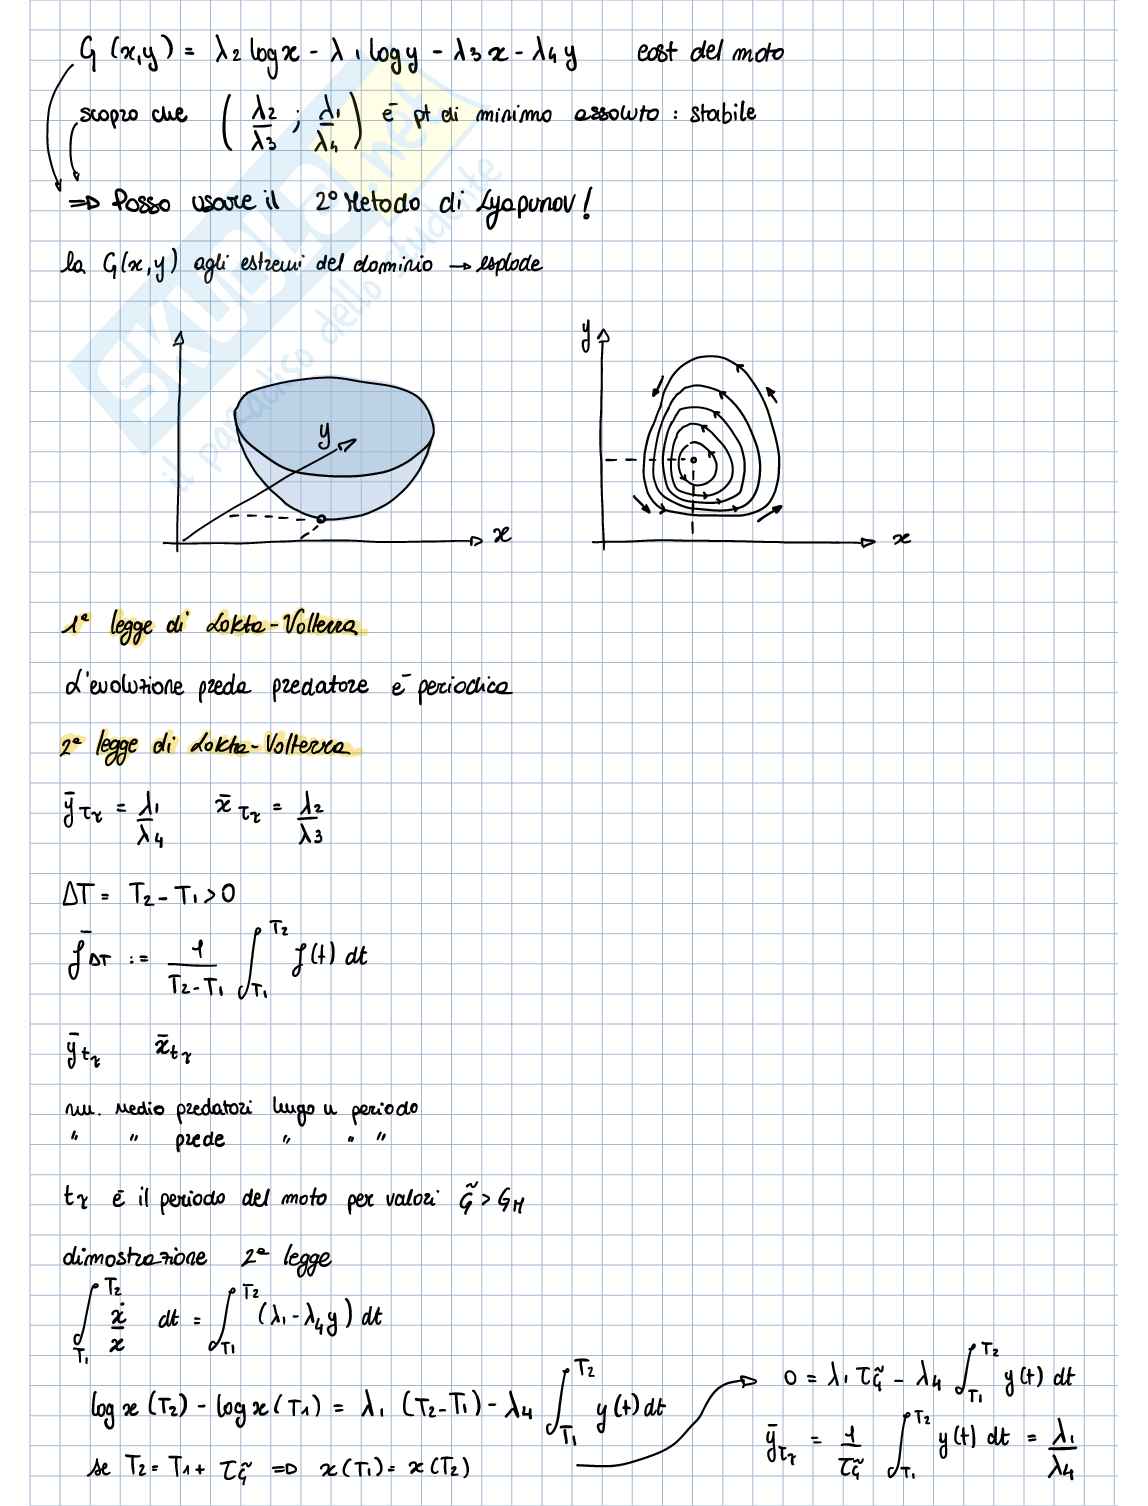 G(x,y) = λ2 log x - λ1 log y - λ3 x - λ4 y   cost del moto
scopro che (λ2/λ3 ; λ1/λ4) è pt di minimo assoluto : stabile
=> Posso usare il 2° Metodo di Lyapunov!
la G(x,y) agli estremi del dominio → esplode
y
y
x
x
1ª legge di Lokta-Volterra
L'evoluzione preda predatore è periodica
2ª legge di Lokta-Volterra
ȳτr = λ1/λ4   x̄τr = λ2/λ3
ΔT = T2 - T1 > 0
f̄ΔT := 1/(T2-T1) ∫T1^T2 f(t) dt
ȳtr   x̄tr
nu. medio predatori lungo u periodo
" " prede " " "
tr è il periodo del moto per valori G̃ > GM
dimostrazione 2ª legge
∫T1^T2 ẋ/x dt = ∫T1^T2 (λ1 - λ4 y) dt
log x(T2) - log x(T1) = λ1 (T2-T1) - λ4 ∫T1^T2 y(t) dt
se T2 = T1 + τG̃ => x(T1) = x(T2)
0 = λ1 τG̃ - λ4 ∫T1^T2 y(t) dt
ȳτr = 1/τG̃ ∫T1^T2 y(t) dt = λ1/λ4
SKUOLA.net
il paradiso dello studente